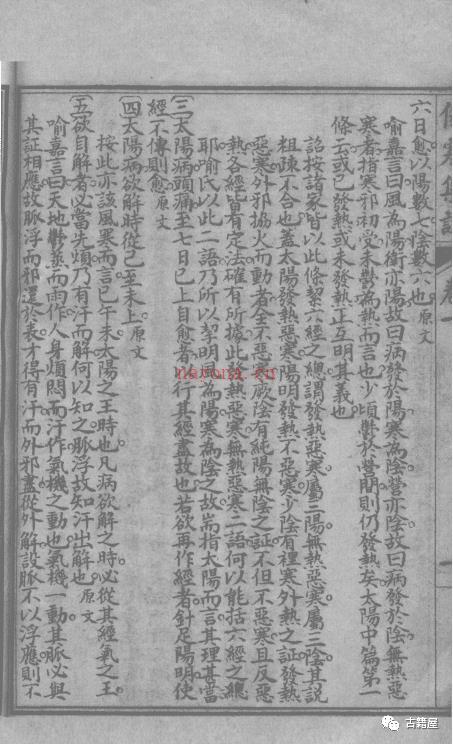 六日愈以陽數七陰數六也原文
喻嘉言曰風為陽衛亦陽故曰病發於陽寒為陰營亦陰故曰病發於陰無熱惡
寒者指寒邪初受未鬱為熱而言也少頃鬱於營間則仍發熱矣太陽中篇第一
條云或已發熱或未發熱正互明其義也
詒按諸家皆以此條繫六經之總謂發熱惡寒屬三陽無熱惡寒屬三陰其說
粗疎不合也蓋太陽發熱惡寒陽明發熱不惡寒少陰有裡寒外熱之証發熱
惡寒外邪協火而動者全不惡寒厥陰有純陽無陰之証不但不惡寒且反惡
熱各經皆有定法確有所據此發熱惡寒無熱惡寒二語何以能括六經之總
耶喻氏以此二語乃所以挈明風為陽寒為陰之故耑指太陽而言其理甚當
三太陽病頭痛至七日已上自愈者以行其經盡故也若欲再作經者針足陽明使
經不傳則愈原文
四太陽病欲解時從巳至未上原文
按此亦該風寒而言巳午未太陽之王時也凡病欲解之時必從其經氣之王
五欲自解者必當先煩乃有汗而解何以知之脈浮故知汗出解也原文
喻嘉言曰天地鬱蒸而雨作人身煩悶而汗作氣機之動也氣機一動其脈必與
其証相應故脈浮而邪還於表才得有汗而外邪盡從外解設脈不以浮應則不
卷一
navona.cn
古籍屋